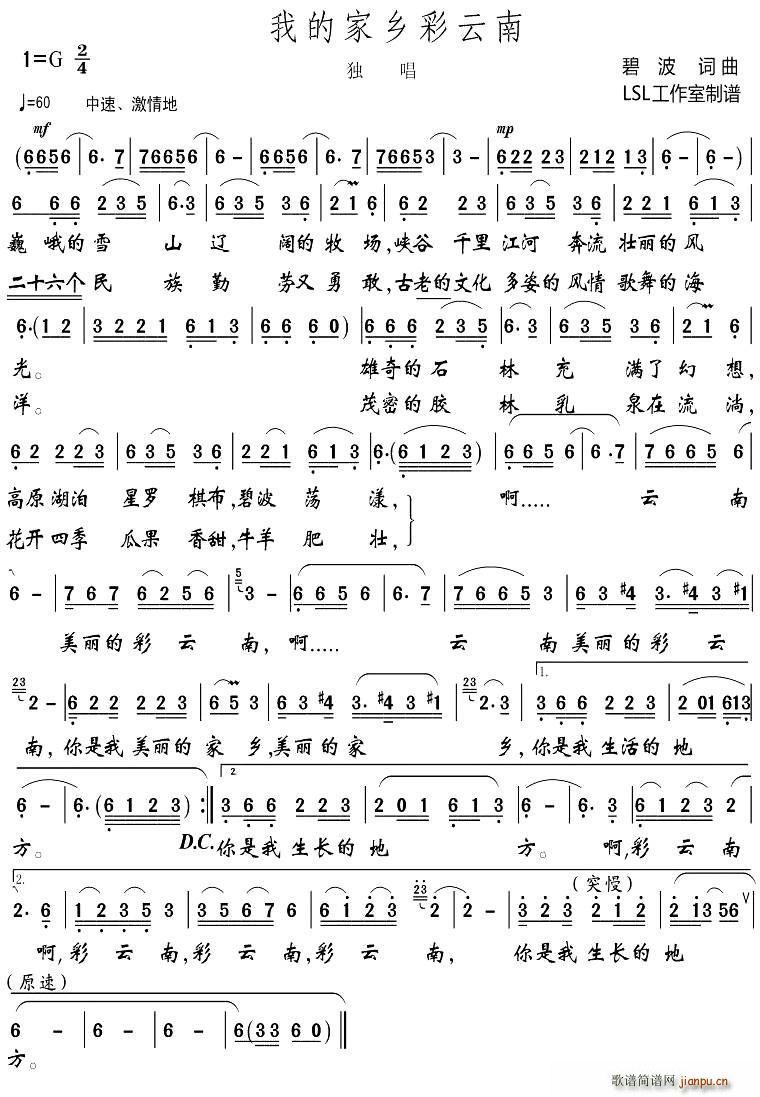 我的家乡彩云南
1=G 2/4
独 唱
碧 波 词 曲
♩=60 中速、激情地
LSL工作室制谱
mf mp
(6656 6·7 766656 6- 6656 6·7 766653 3- 622 23 212 13 6- 6-)
6 66 235 6·3 635 36 216 62 23 635 36 221 613
巍 峨的 雪 山 辽 阔的 牧 场,峡谷 千里 江河 奔流 壮丽的 风
二十六个 民 族 勤 劳又 勇 敢,古老的文化 多姿的 风情 歌舞的 海
6·(12 3221 613 66 660) 666 235 6·3 635 36 216
光。 雄奇的 石 林 充 满了 幻 想,
洋。 茂密的 胶 林 乳 泉在 流 淌,
62 223 635 36 221 613 6·(6123) 6656 6·7 76656
高原 湖泊 星罗 棋布,碧波 荡 漾, 啊..... 云 南
花开四季 瓜果 香甜,牛羊 肥 壮,
6- 767 6256 5 3- 6656 6·7 766653 63#4 3·#43#1
美丽的 彩 云 南, 啊..... 云 南 美丽的 彩 云
23 2- 622 223 653 63#4 3·#43#1 23 2·3 1. 366 223 201 613
南, 你是我 美丽的 家 乡,美丽的 家 乡, 你是我 生活的 地
6- 6·(6123) :‖ 2 366 223 201 613 6- 6·3 6123 2
方。 D.C. 你是我 生长的 地 方。 啊,彩 云 南
2. 2·6 1235 3567 6 6123 23 2 2- 323 212 (突慢) 21356 V
啊,彩 云 南,彩 云 南,彩 云 南, 你是我 生长的 地
(原速)
6 - 6 - 6 - 6(33 60)
方。
歌谱简谱网
jianpu.cn